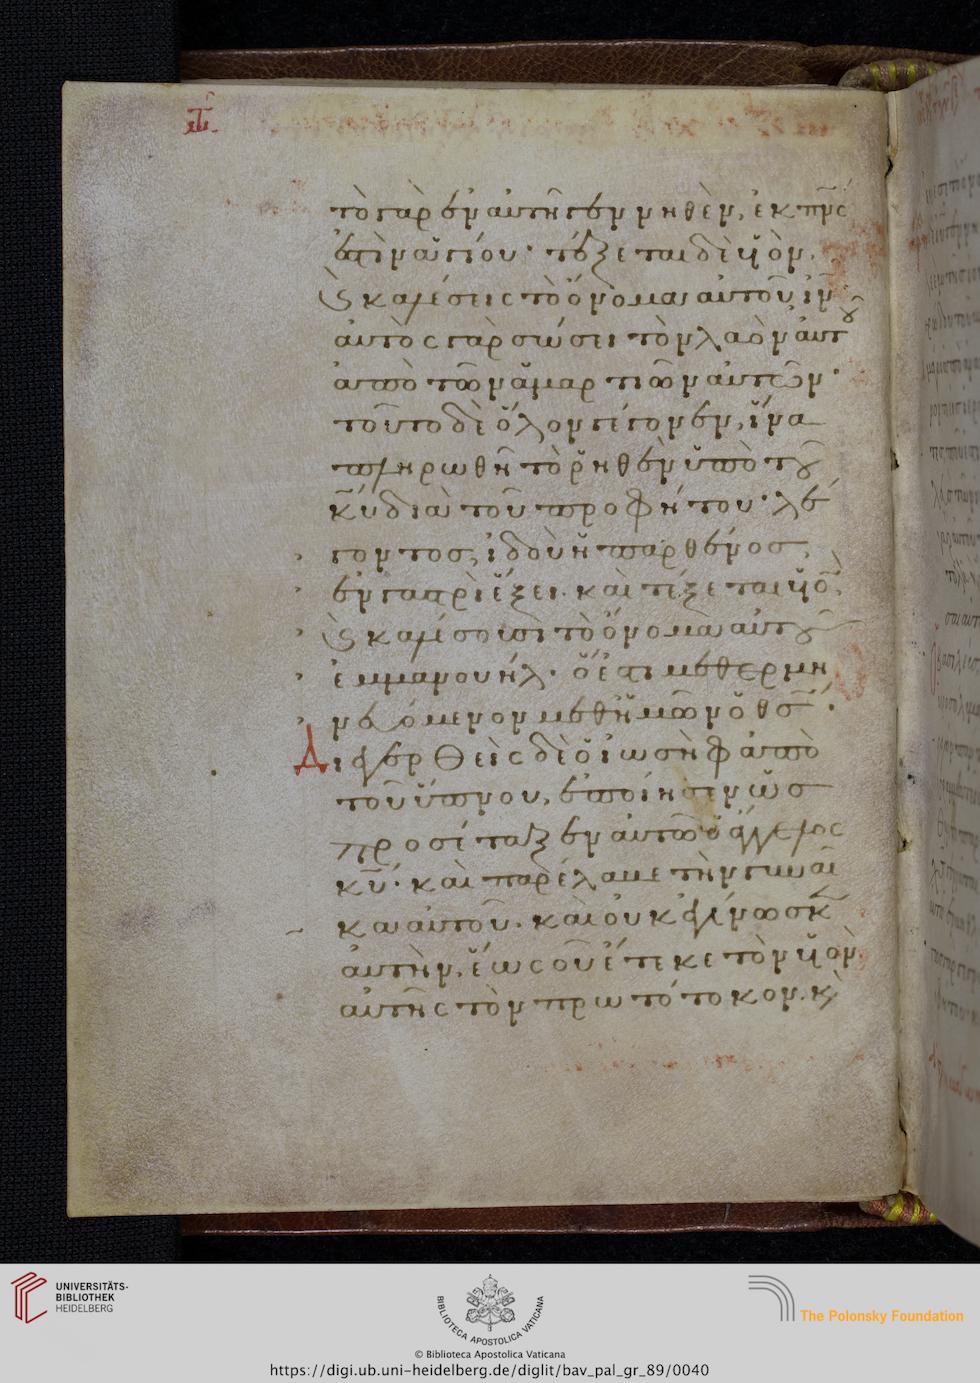 τὸ γὰρ ἐν αὐτῆ γεννηθὲν, ἐκ πν̅ς
ἐστὶν ἁγίου· τέξεται δὲ υἱὸν.
καὶ καλέσεις τὸ ὄνομα αὐτοῦ ιν̅·
αὐτὸς γὰρ σώσει τὸν λαὸν αὐτοῦ
ἀπὸ τῶν ἁμαρτιῶν αὐτῶν·
τοῦτο δὲ ὅλον γέγονεν, ἵνα
πληρωθῆ τὸ ῥηθὲν ὑπὸ τοῦ
κ̅υ διὰ τοῦ προφήτου· λέ
γοντος, ἰδοὺ ἡ παρθένος
ἐν γαστρὶ ἕξει. καὶ τέξεται υἱὸν,
καὶ καλέσουσι τὸ ὄνομα αὐτοῦ
ἐμμανουήλ· ὅ ἐστι μεθερμη
νευόμενον μεθ ἡμῶν ὁ θσ̅·
Διεγερθεὶς δὲ ὁ ἰωσὴφ ἀπὸ
τοῦ ὕπνου, ἐποίησεν ὡσ
προσέταξεν αὐτῶ ὁ ἄγγελος
κυ̅· καὶ παρέλαβε τὴν γυναῖ
κα αὐτοῦ· καὶ οὐκ ἐγίνωσκεν
αὐτὴν, ἕως οὗ ἔτεκε τὸν υἱὸν
αὐτῆς τὸν πρωτότοκον. κὶ
UNIVERSITÄTS-
BIBLIOTHEK
HEIDELBERG
BIBLIOTECA APOSTOLICA VATICANA
The Polonsky Foundation
© Biblioteca Apostolica Vaticana
https://digi.ub.uni-heidelberg.de/diglit/bav_pal_gr_89/0040